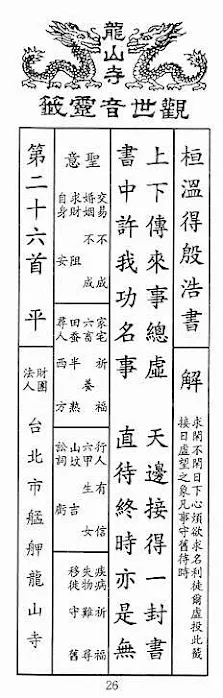 龍山寺
觀世音靈籤
桓溫得殷浩書
解
求閑不閑日下心煩欲求名利徒爾虛投此籤
接日虛望之象凡事守舊待時
上下傳來事總虛 天邊接得一封書
書中許我功名事 直待終時亦是無
聖意
交易 不成
婚姻 不成
求財 阻
自身 安
家宅 祈福
六畜 養
田蚕 半熟
尋人 西方
行人 有信
六甲 生女
山墳 吉
訟詞
疾病 祈福
失物 難尋
移徙 守舊
第二十六首 平
財團法人 台北市艋舺龍山寺
26